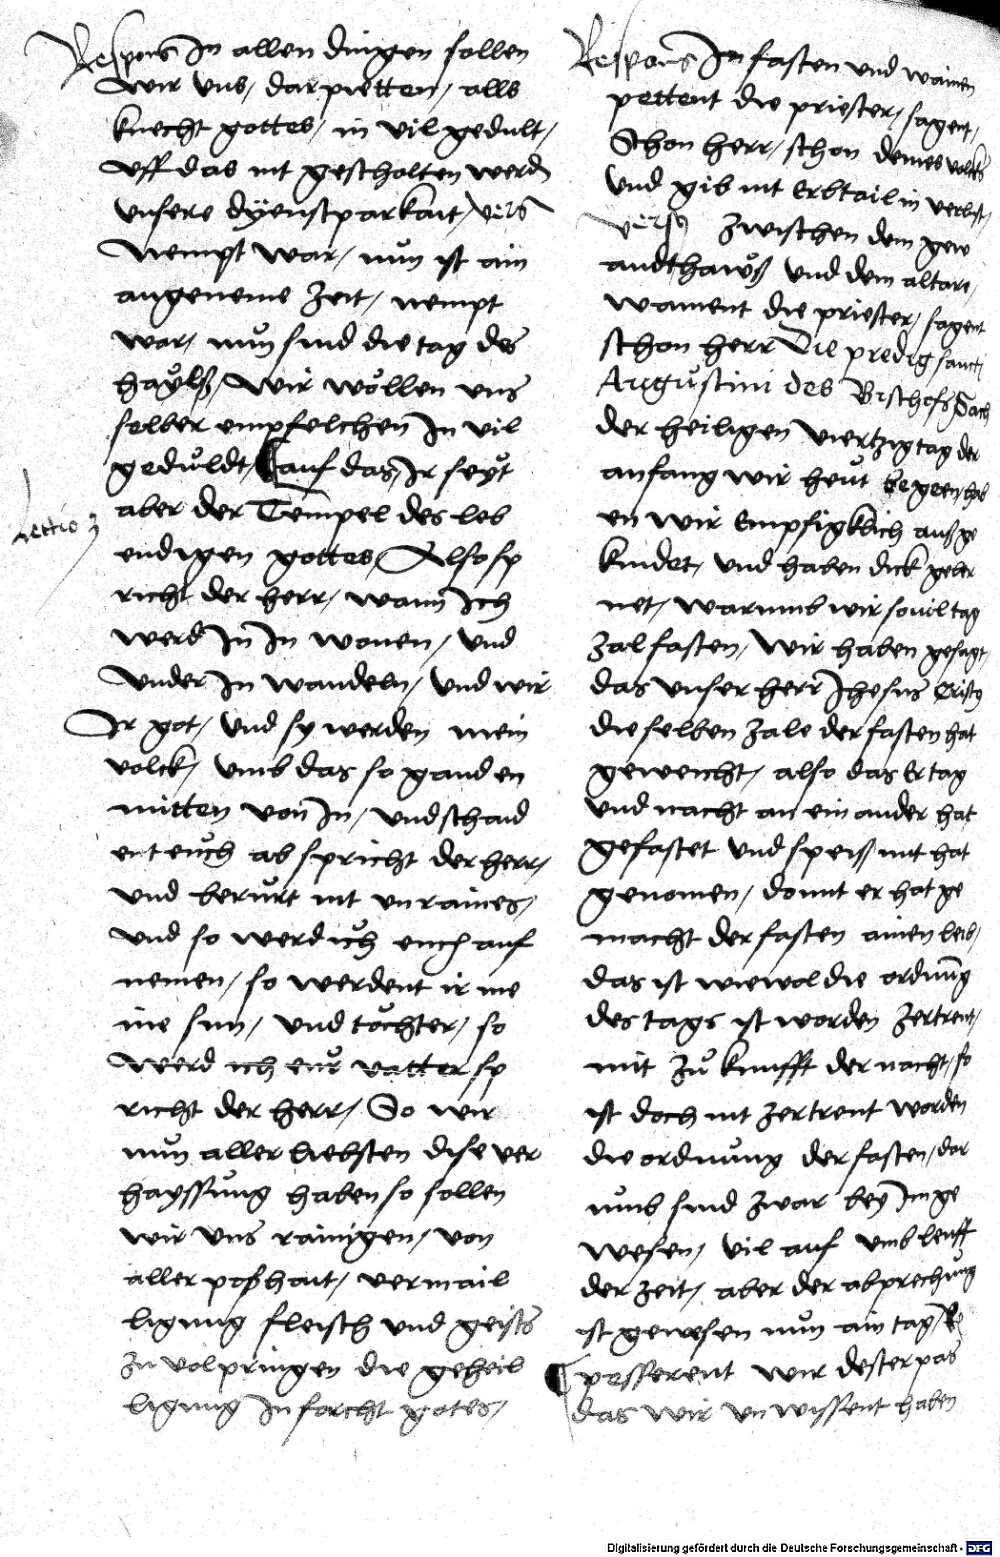 Respons In allen dingen sollen
wir uns, darpietten, alls
knecht gottes, in vil gedult,
uff das nit gescholten werd
unsere dyenstparkait, vers
Nempt war, nun ist ain
angeneme zeit, nempt
war, nun sind die tag des
hayls, wir wöllen uns
selber empfelchen In vil
geduldt, auf das, Ir seyt
aber der Tempel des leb
endigen gottes, Also sp
richt der herr, wann Ich
werd In In wonen, und
under In wandeln, und wir
Ir got, und sy werden mein
volck, umb das so gand en
mitten von In, und schaid
ent euch ab spricht der herr,
und berürt nit unraines,
und so werd ich euch auf
nemen, so werdent ir me
ine sun, und töchter, so
werd ich eur vatter sp
richt der herr, So wir
nun aller liebsten dise ver
hayssung haben so sollen
wir uns rainigen, von
aller poshait, vermail
ligung fleisch und geists
zu volpringen die geheil
ligung In forcht gotes,
Lectio
Respons In fasten und wainen
pettent die priester, sagent,
Schon herr, schon deines volcks
und gib nit Erbtail in verlust,
vers zwischen dem gew
andthawß und dem altare,
wament die priester, sagent
schon herr Die predig sancti
Augustini des Bischofs Nach
der heiligen viertzig tag der
anfang wir heut begeen, hab
en wir Empsigklich auß ge
kindet, und haben dick geler
net, warumb wir sovil tag
zal fasten, wir haben gesagt,
das unser herr Jhesus Cristus
die selben zale der fasten hat
geweicht, also das Er tag
und nacht an ein ander hat
gefastet und speiss nit hat
genomen, domit er hat ge
macht der fasten ainen leib,
das ist wiewol die ordnung
des tags ist worden zertrent,
mit zu kunfft der nacht, so
ist doch nit zertrent worden
die ordnung der fasten, dar
umb sind zwar bey Im ge
wesen, vil auf umbleuff
der zeit, aber der abprechung
ist gewesen nun ain tag, Re
passerent wir dester pas
das wir unwissent haben
Digitalisierung gefördert durch die Deutsche Forschungsgemeinschaft - DFG